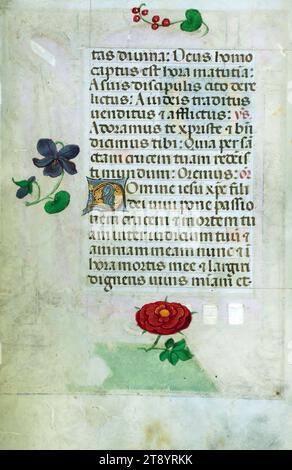 tas diuina: Deus homo
captus est hora matutia:
A suis discipulis cito dere
lictus: A iudeis traditus
uenditus ⁊ afflictus: ℣s.
Adoramus te xpriste ⁊ bn̄
dicimus tibi: Quia per sā
tam crucem tuam redeis
ti mundum: Oremus: or
Domine iesu xpe fili
dei uiui pone passio
nem crucem ⁊ mortem tu
am inter iudicium tuū ⁊
animam meam nunc ⁊ ī
hora mortis mee ⁊ largiri
digneris uiuis miam et
alamy
Image ID: 2T8YRKK
www.alamy.com